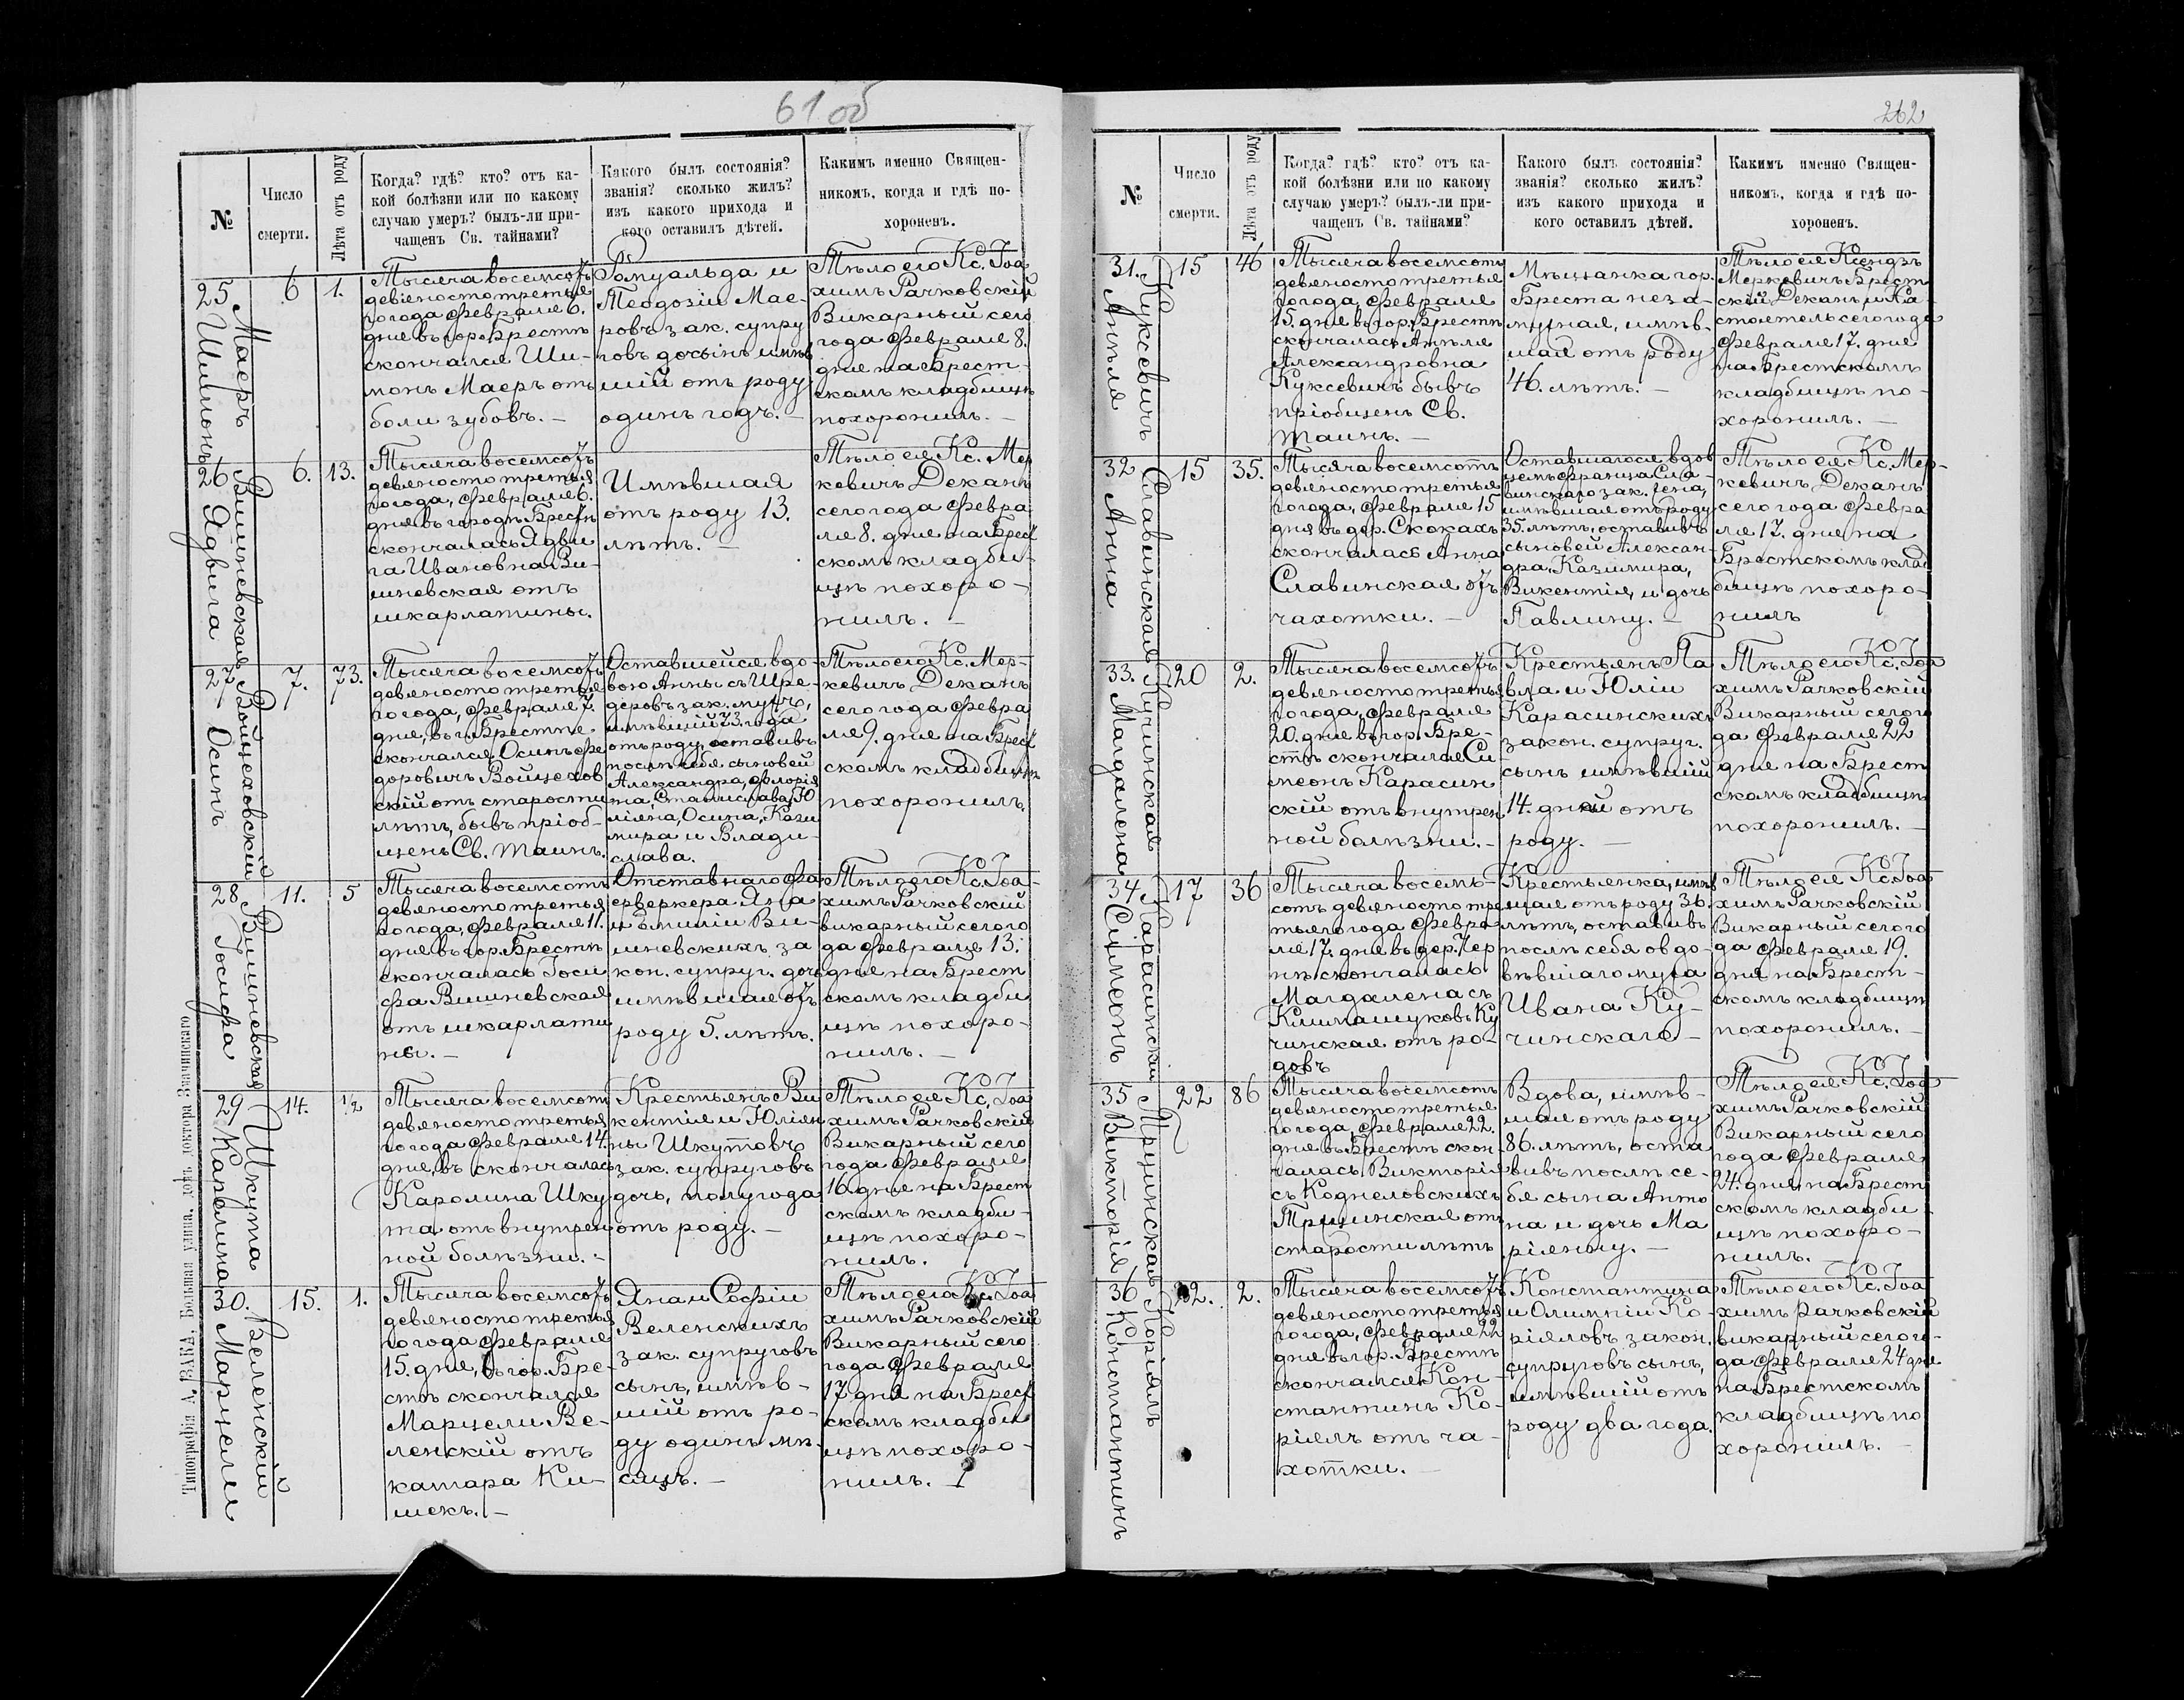 61 об
№
Число
смерти.
Лѣта отъ роду
Когда? гдѣ? кто? отъ ка-
кой болѣзни или по какому
случаю умеръ? былъ-ли при-
чащенъ Св. тайнами?
Какого былъ состоянія?
званія? сколько жилъ?
изъ какого прихода и
кого оставилъ дѣтей.
Какимъ именно Священ-
никомъ, когда и гдѣ по-
хороненъ.
25
Маеръ
Шимонъ
6
1.
Тысяча восемсотъ
девяносто третья
го года февраля 6.
дня въ гор. Брестѣ
скончался Ши-
монъ Маеръ отъ
боли зубовъ. —
Ромуальда и
Теодозіи Мае-
ровъ зак. супру
говъ сынъ имѣв
шій отъ роду
одинъ годъ. —
Тѣло его Кс. Іоа
химъ Рачковскій
Викарный сего
года февраля 8.
дня на Брест-
скомъ кладбищѣ
похоронилъ. —
26
Вишневская
Ядвига
6.
13.
Тысяча восемсотъ
девяносто третья
го года, февраля 6.
дня въ городѣ Брестѣ
скончалась Ядви
га Ивановна Ви-
шневская отъ
шкарлатины.
Имѣвшая
отъ роду 13.
лѣтъ. —
Тѣло ея Кс. Мер
кевичъ Деканъ
сего года февра
ля 8. дня на Брест
скомъ кладби-
щѣ похоро-
нилъ. —
27
Войцеховскій
Осипъ
7.
73.
Тысяча восемсотъ
девяносто третья
го года, февраля 7.
дня, въ г. Брестѣ
скончался Осипъ Фе
доровичъ Войцехов
скій отъ старости
лѣтъ, бывъ пріоб-
щенъ Св. Таинъ.
Оставшейся вдо-
вою Анны съ Шре-
деровъ зак. мужъ,
имѣвшій 73. года
отъ роду, оставивъ
послѣ себя сыновей
Александра, Флорія
на, Станислава, Ю
ліяна, Осипа, Кази
мира и Влади-
слава.
Тѣло его Кс. Мер-
кевичъ Деканъ
сего года февра
ля 9. дня на Брест
скомъ кладбищѣ
похоронилъ.
28
Вишневская
Іосифа
11.
5
Тысяча восемсотъ
девяносто третья
го года, февраля 11.
дня въ гор. Брестѣ
скончалась Іоси
фа Вишневская
отъ шкарлати
ны. —
Отставнаго фе
ерверкера Яна
и Эмиліи Ви-
шневскихъ за
кон. супруг. дочь
имѣвшая отъ
роду 5. лѣтъ.
Тѣло его Кс. Іоа-
химъ Рачковскій
викарный сего го
да февраля 13.
дня на Брест
скомъ кладби
щѣ похоро-
нилъ. —
29
Шкута
Каролина
14.
1/2
Тысяча восемсотъ
девяносто третья
го года февраля 14.
дня, въ скончалась
Каролина Шку
та отъ внутрен
ной болѣзни. —
Крестьянъ Ви
кентія и Юліян
ны Шкутовъ
зак. супруговъ
дочь, полугода
отъ роду. —
Тѣло ея Кс. Іоа
химъ Рачковскій
Викарный сего
года февраля
16. дня на Брест
скомъ кладби-
щѣ похоро-
нилъ.
30.
Веленскій
Марцели
15.
1.
Тысяча восемсотъ
девяносто третья
го года февраля
15. дня, въ гор. Бре-
стѣ скончался
Марцели Ве-
ленскій отъ
катара Ки-
шекъ. —
Яна и Софіи
Веленскихъ
зак. супруговъ
сынъ, имѣв-
шій отъ ро-
ду одинъ мѣ-
сяцъ. —
Тѣло его Кс. Іоа
химъ Рачковскій
Викарный сего
года февраля
17 дня на Брест
скомъ кладби
щѣ похоро-
нилъ.
Типографія А. ВАКА, Большая улица, домъ доктора Значинскаго
262
№
Число
смерти.
Лѣта отъ роду
Когда? гдѣ? кто? отъ ка-
кой болѣзни или по какому
случаю умеръ? былъ-ли при-
чащенъ Св. тайнами?
Какого былъ состоянія?
званія? сколько жилъ?
изъ какого прихода и
кого оставилъ дѣтей.
Какимъ именно Священ-
никомъ, когда и гдѣ по-
хороненъ.
31.
Куксевичъ
Анѣля
15
46
Тысяча восемсотъ
девяносто третья
го года, февраля
15. дня въ гор. Брестѣ
скончалась Анѣля
Александровна
Куксевичъ бывъ
пріобщенъ Св.
Таинъ. —
Мѣщанка гор.
Бреста неза-
мужная, имѣв-
шая отъ роду
46. лѣтъ. —
Тѣло ея Ксендзъ
Меркевичъ Брест
скій Деканъ и На
стоятель сего года
февраля 17. дня
на Брестскомъ
кладбищѣ по-
хоронилъ. —
32
Славинская
Анна
15
35.
Тысяча восемсотъ
девяносто третья
го года, февраля 15
дня въ дер. Скокахъ
скончалась Анна
Славинская отъ
чахотки. —
Оставшагося вдов
цемъ Франца Сла
винскаго зак. жена,
имѣвшая отъ роду
35. лѣтъ, оставивъ
сыновей Алексан-
дра, Казимира,
Викентія, и дочь
Павлину. —
Тѣло ея Кс. Мер-
кевичъ Деканъ
сего года февра
ля 17. дня на
Брестскомъ клад
бищѣ похоро-
нилъ
33.
Кучинская
Магдалена
20
2.
Тысяча восемсотъ
девяносто третья
го года, февраля
20. дня въ гор. Бре-
стѣ скончался Си
меонъ Карасин
скій отъ внутрен
ной болѣзни. —
Крестьянъ Па
вла и Юліи
Карасинскихъ
закон. супруг.
сынъ имѣвшій
14. дней отъ
роду. —
Тѣло его Кс. Іоа
химъ Рачковскій
Викарный сего го
да февраля 22
дня на Брест
скомъ кладбищѣ
похоронилъ. —
34
Карасинскій
Симеонъ
17
36
Тысяча восемь-
сотъ девяносто тре
тьяго года февра-
ля 17. дня въ дер. Чер
нѣ скончалась
Магдалена съ
Климашуковъ Ку
чинская отъ ро-
довъ
Крестьянка, имѣв
шая отъ роду 36.
лѣтъ, оставивъ
послѣ себя овдо-
вѣвшаго мужа
Ивана Ку-
чинскаго —
Тѣло ея Кс. Іоа
химъ Рачковскій
Викарный сего го
да февраля 19.
дня на Брест-
скомъ кладбищѣ
похоронилъ. —
35
Тришинская
Викторія
22
86
Тысяча восемсотъ
девяносто третья
го года, февраля 22.
дня въ Брестѣ скон
чалась Викторія
съ Коднеловскихъ
Тришинская отъ
старости лѣтъ
Вдова, имѣв-
шая отъ роду
86. лѣтъ, оста
вивъ послѣ се-
бя сына Анто
на и дочь Ма
ріянну. —
Тѣло ея Кс. Іоа
химъ Рачковскій
Викарный сего
года февраля
24. дня на Брест
скомъ кладби-
щѣ похоро-
нилъ. —
36
Коріялъ
Константинъ
22.
2.
Тысяча восемсотъ
девяносто третья
го года, февраля 22
дня въ гор. Брестѣ
скончался Кон-
стантинъ Ко-
ріялъ отъ ча-
хотки. —
Константина
и Олимпіи Ко-
ріяловъ закон.
супруговъ сынъ,
имѣвшій отъ
роду два года.
Тѣло его Кс. Іоа
химъ Рачковскій
викарный сего го-
да февраля 24 дня
на Брестскомъ
кладбищѣ по
хоронилъ. —